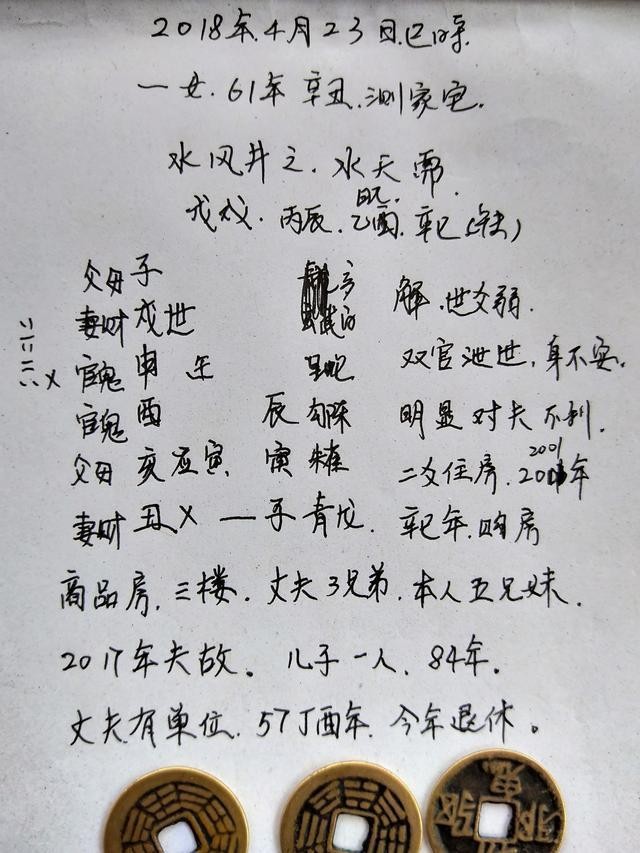 2018年.4月23日.巳时.
一女.61年辛丑.测家宅.
水风井之.水天需.
戊戌.丙辰.乙酉.辛巳(午未)
父母子 解.世爻弱.
妻财戌世 双官泄世,身不安.
官鬼申 呈蛇 明显对夫不利.
官鬼酉 辰勾陈 二爻住房.2001年
父母亥应寅 寅朱雀 辛巳年.购房
妻财丑X 一子青龙.
商品房,三楼.丈夫3兄弟.本人五兄妹.
2017年夫故。儿子一人.84年.
丈夫有单位.57丁酉年.今年退休。